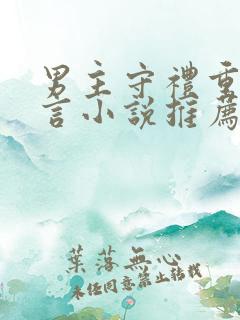 男主守禮重
言小說推薦
葉落無心
未经同意禁止转载